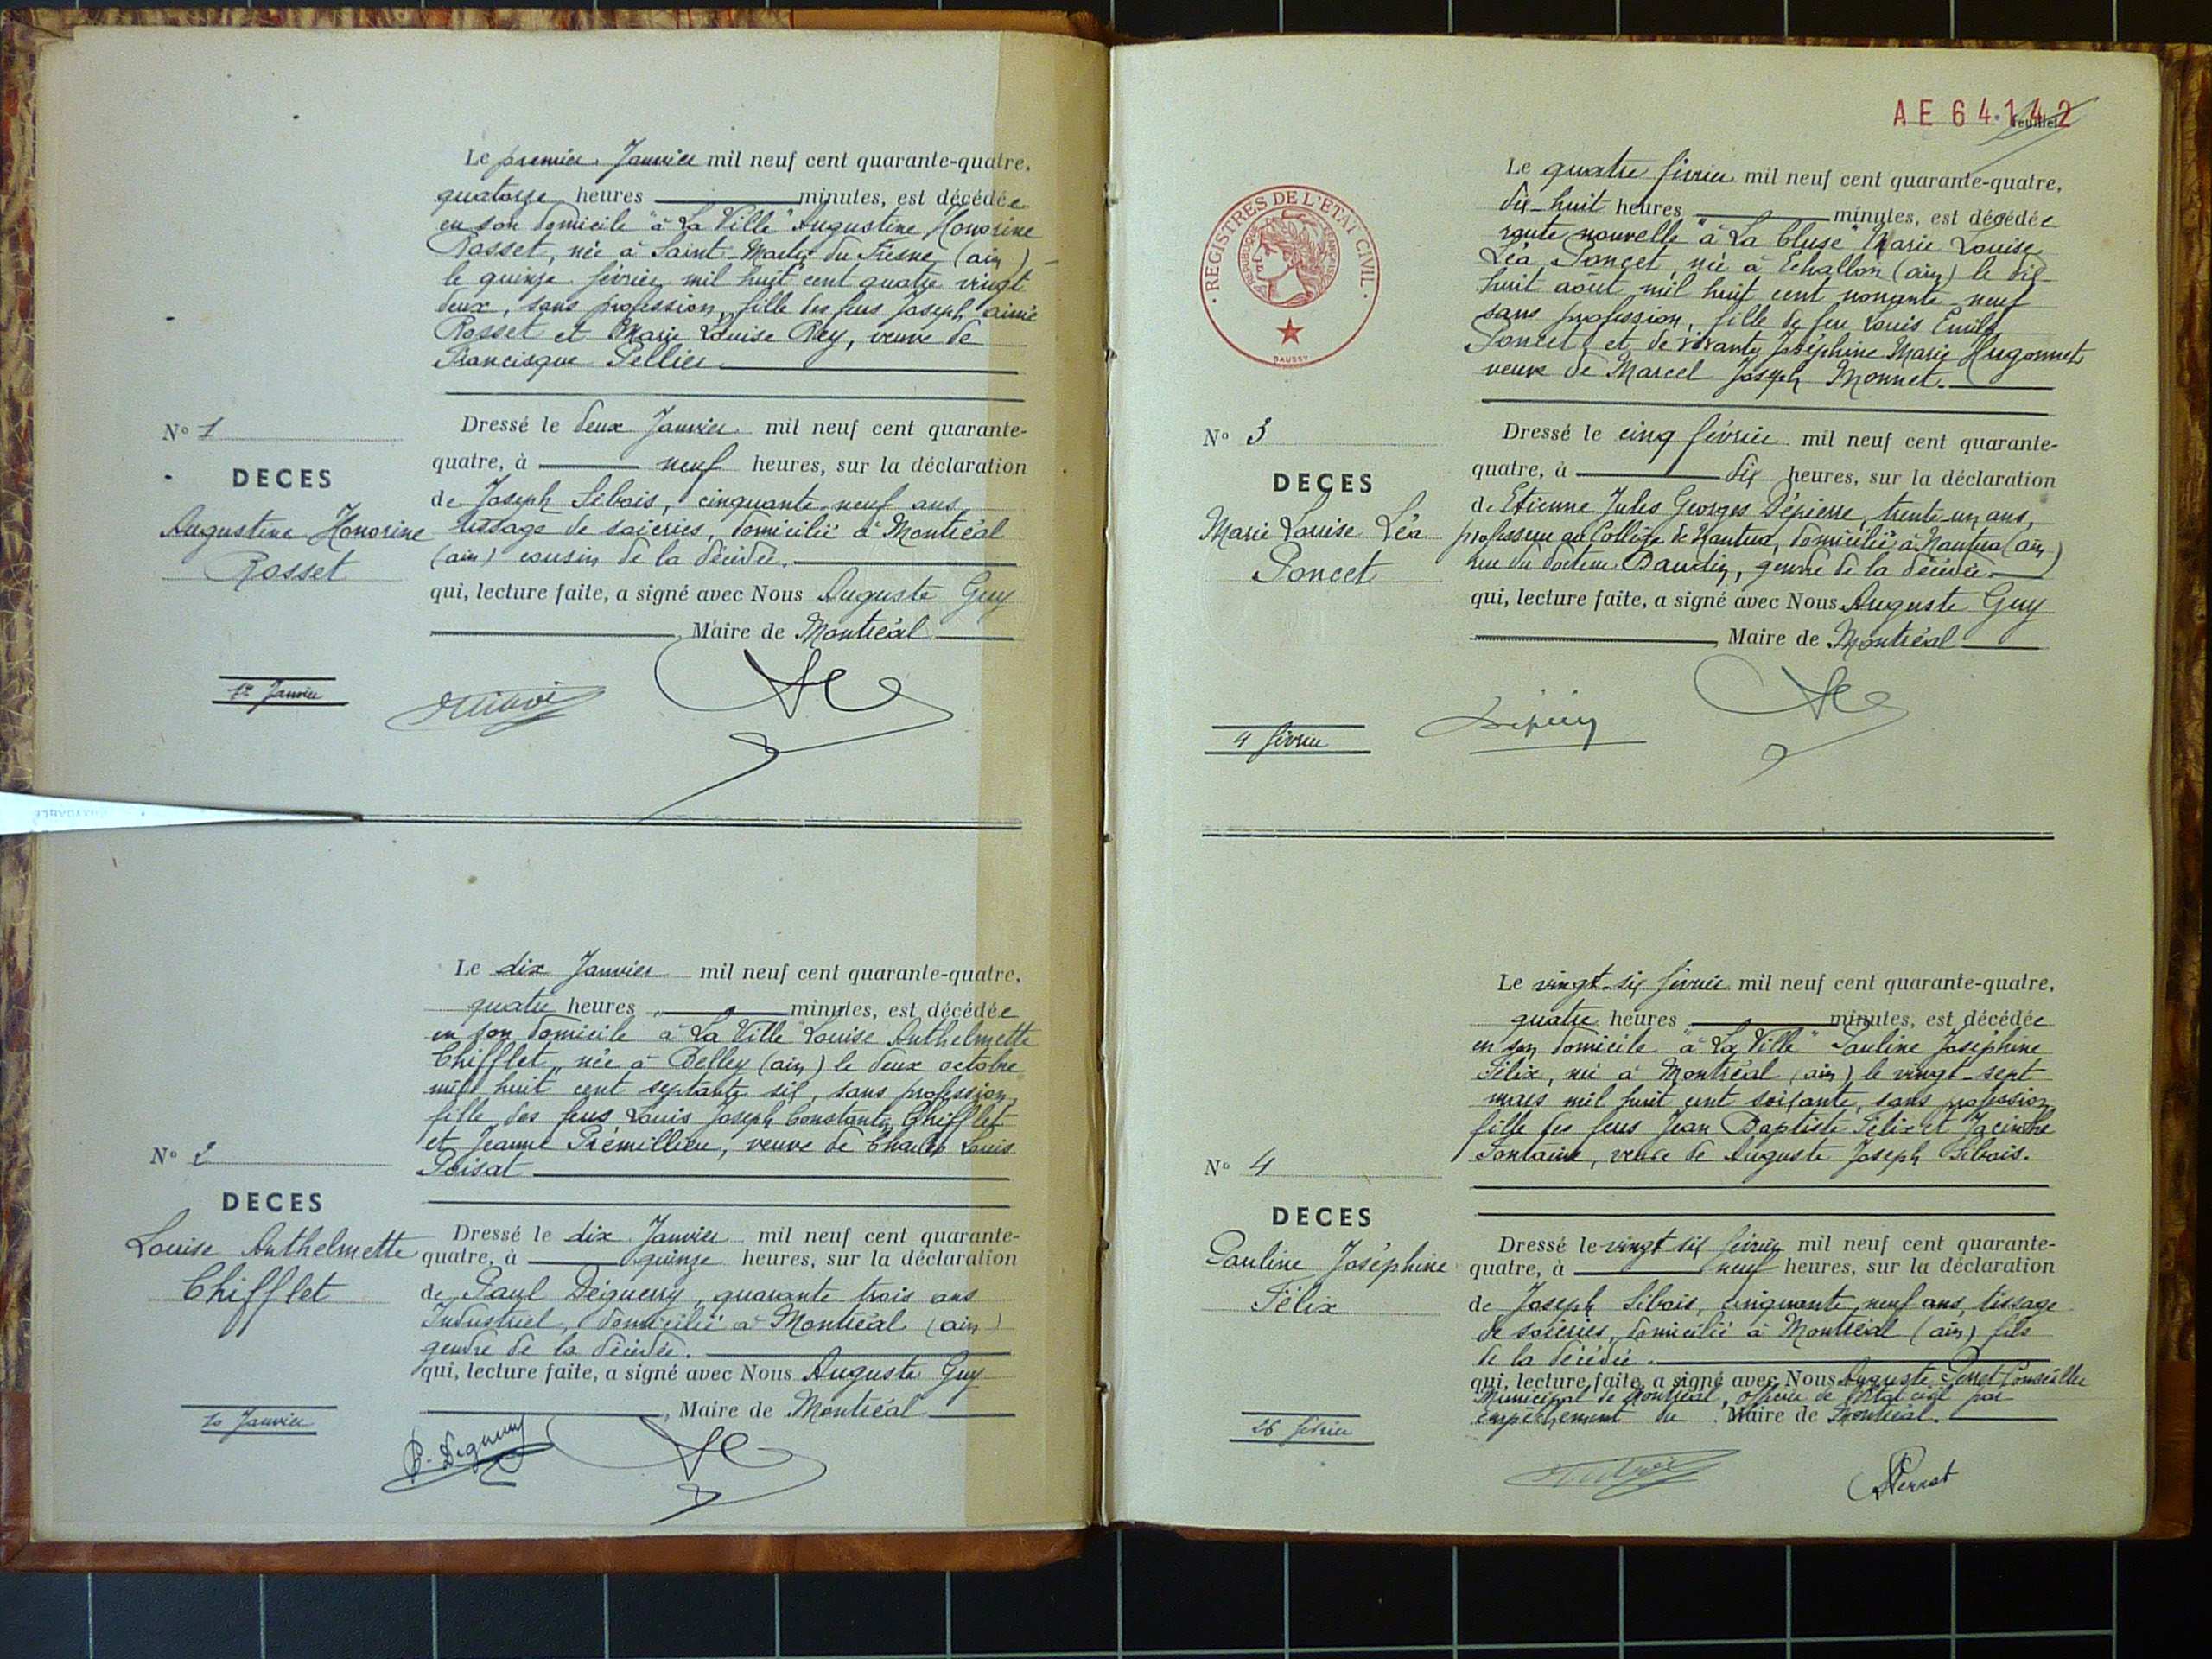 Le premier Janvier mil neuf cent quarante-quatre,
quatorze heures minutes, est décédée
en son domicile "à La Ville" Augustine Honorine
Rosset, née à Saint-Martin du Fresne (ain)
le quinze février mil huit cent quatre vingt
deux, sans profession, fille des feus Joseph aimé
Rosset et Marie Louise Rey, veuve de
Francisque Pellier
Nº 1
DECES
Augustine Honorine
Rosset
Dressé le deux Janvier mil neuf cent quarante-
quatre, à neuf heures, sur la déclaration
de Joseph Sibois, cinquante-neuf ans,
tissage de soieries, domicilié à Montréal
(ain) cousin de la décédée.
qui, lecture faite, a signé avec Nous Auguste Guy
, Maire de Montréal
1er Janvier
Le dix Janvier mil neuf cent quarante-quatre,
quatre heures minutes, est décédée
en son domicile à La Ville" Louise Anthelmette
Chifflet, née à Belley (ain) le deux octobre
mil huit cent septante six, sans profession,
fille des feus Louis Joseph Constantin Chifflet
et Jeanne Prémillieu, veuve de Charles Louis
Poisat
Nº 2
DECES
Louise Anthelmette
Chifflet
Dressé le dix Janvier mil neuf cent quarante-
quatre, à quinze heures, sur la déclaration
de Paul Déguerry, quarante trois ans
Industriel, domicilié à Montréal (ain)
gendre de la décédée.
qui, lecture faite, a signé avec Nous Auguste Guy
, Maire de Montréal
10 Janvier
AE 64.142
feuillet
REGISTRES DE L'ÉTAT CIVIL
REPUBLIQUE FRANÇAISE
DAUSSY
Le quatre février mil neuf cent quarante-quatre,
dix-huit heures minutes, est décédée
route nouvelle "à La Cluse" Marie Louise
Léa Poncet, née à Echallon (ain) le dix-
huit août mil huit cent nonante-neuf
sans profession, fille de feu Louis Emile
Poncet et de vivante Joséphine Marie Hugonnet
veuve de Marcel Joseph Monnet.
Nº 3
DECES
Marie Louise Léa
Poncet
Dressé le cinq février mil neuf cent quarante-
quatre, à dix heures, sur la déclaration
de Etienne Jules Georges Dépierre, trente-un ans,
professeur au Collège de Nantua, domicilié à Nantua (ain)
rue du docteur Baudin, gendre de la décédée
qui, lecture faite, a signé avec Nous Auguste Guy
, Maire de Montréal
4 février
Le vingt-six février mil neuf cent quarante-quatre,
quatre heures minutes, est décédée
en son domicile "à La Ville" Pauline Joséphine
Félix, née à Montréal (ain) le vingt-sept
mars mil huit cent soixante, sans profession,
fille des feus Jean Baptiste Félix et Jacinthe
Fontaine, veuve de Auguste Joseph Sibois.
Nº 4
DECES
Pauline Joséphine
Félix
Dressé le vingt six février mil neuf cent quarante-
quatre, à neuf heures, sur la déclaration
de Joseph Sibois, cinquante neuf ans, tissage
de soieries, domicilié à Montréal (ain) fils
de la décédée.
qui, lecture faite, a signé avec Nous Auguste Perret Conseiller
Municipal de Montréal, officier de l'état civil par
empêchement du Maire de Montréal.
26 février
APerret